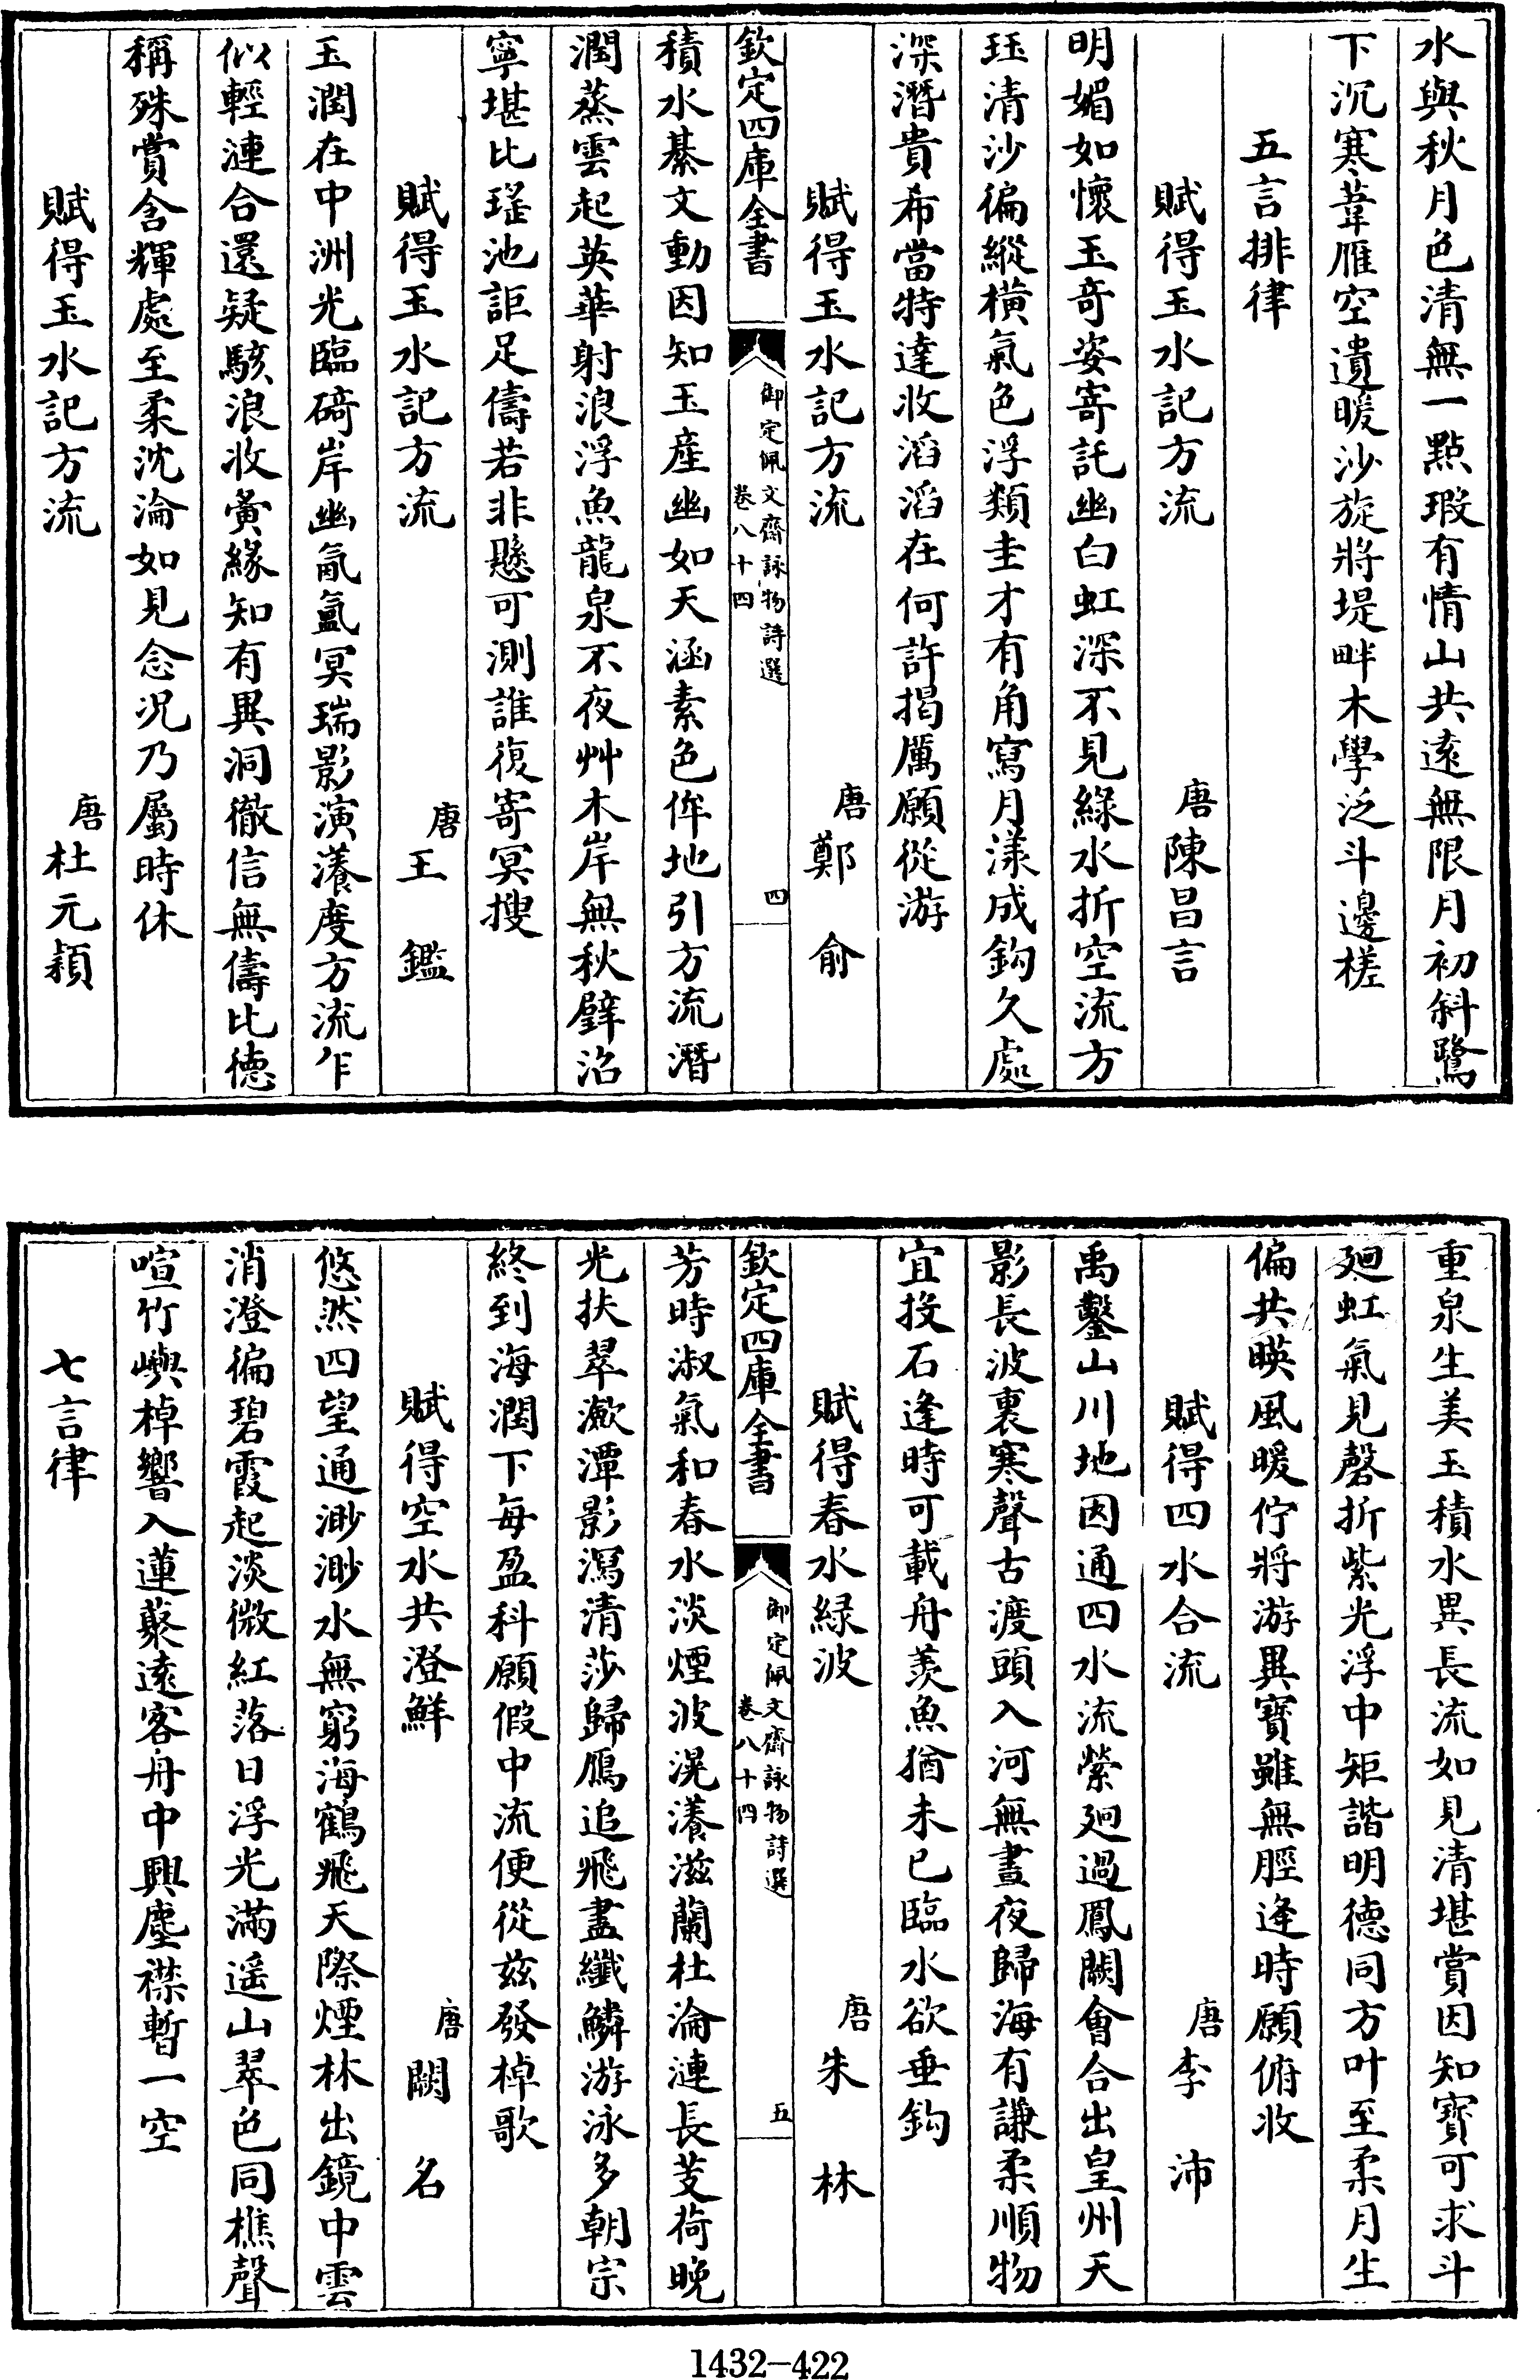 水與秋月色清無一點瑕有情山共遠無限月初斜鷺
下沉寒葦雁空遺暖沙旋將堤畔木學泛斗邊槎
五言排律
賦得玉水記方流 唐陳昌言
明媚如懷玉奇姿寄託幽白虹深不見綠水折空流方
珏清沙徧縱橫氣色浮類圭才有角寫月漾成鈎久處
深潛貴希當特達收滔滔在何許揭厲願從游
賦得玉水記方流 唐鄭俞
欽定四庫全書 御定佩文齋詠物詩選 卷八十四 四
積水綦文動因知玉產幽如天涵素色侔地引方流潛
潤蒸雲起英華射浪浮魚龍泉不夜艸木岸無秋璧沿
寧堪比瑤池詎足儔若非懸可測誰復寄冥搜
賦得玉水記方流 唐王鑑
玉潤在中洲光臨碕岸幽氤氳冥瑞影演瀁度方流乍
似輕漣合還疑駭浪收夤緣知有異洞徹信無儔比德
稱殊賞含輝處至柔沈淪如見念況乃屬時休
賦得玉水記方流 唐杜元穎
重泉生美玉積水異長流如見清堪賞因知寶可求斗
廻虹氣見磬折紫光浮中矩諧明德同方叶至柔月生
偏共暎風暖佇將游異寶雖無脛逢時願俯收
賦得四水合流 唐李沛
禹鑿山川地因通四水流縈廻過鳳闕會合出皇州天
影長波裏寒聲古渡頭入河無晝夜歸海有謙柔順物
宜投石逢時可載舟羨魚猶未已臨水欲垂鈎
賦得春水綠波 唐朱林
欽定四庫全書 御定佩文齋詠物詩選 卷八十四 五
芳時淑氣和春水淡煙波滉瀁滋蘭杜淪漣長芰荷晚
光扶翠瀲潭影瀉清莎歸鴈追飛盡纖鱗游泳多朝宗
終到海潤下每盈科願假中流便從茲發棹歌
賦得空水共澄鮮 唐闕名
悠然四望通渺渺水無窮海鶴飛天際煙林出鏡中雲
消澄徧碧霞起淡微紅落日浮光滿遥山翠色同樵聲
喧竹嶼棹響入蓮叢遠客舟中興塵襟暫一空
七言律
1432-422